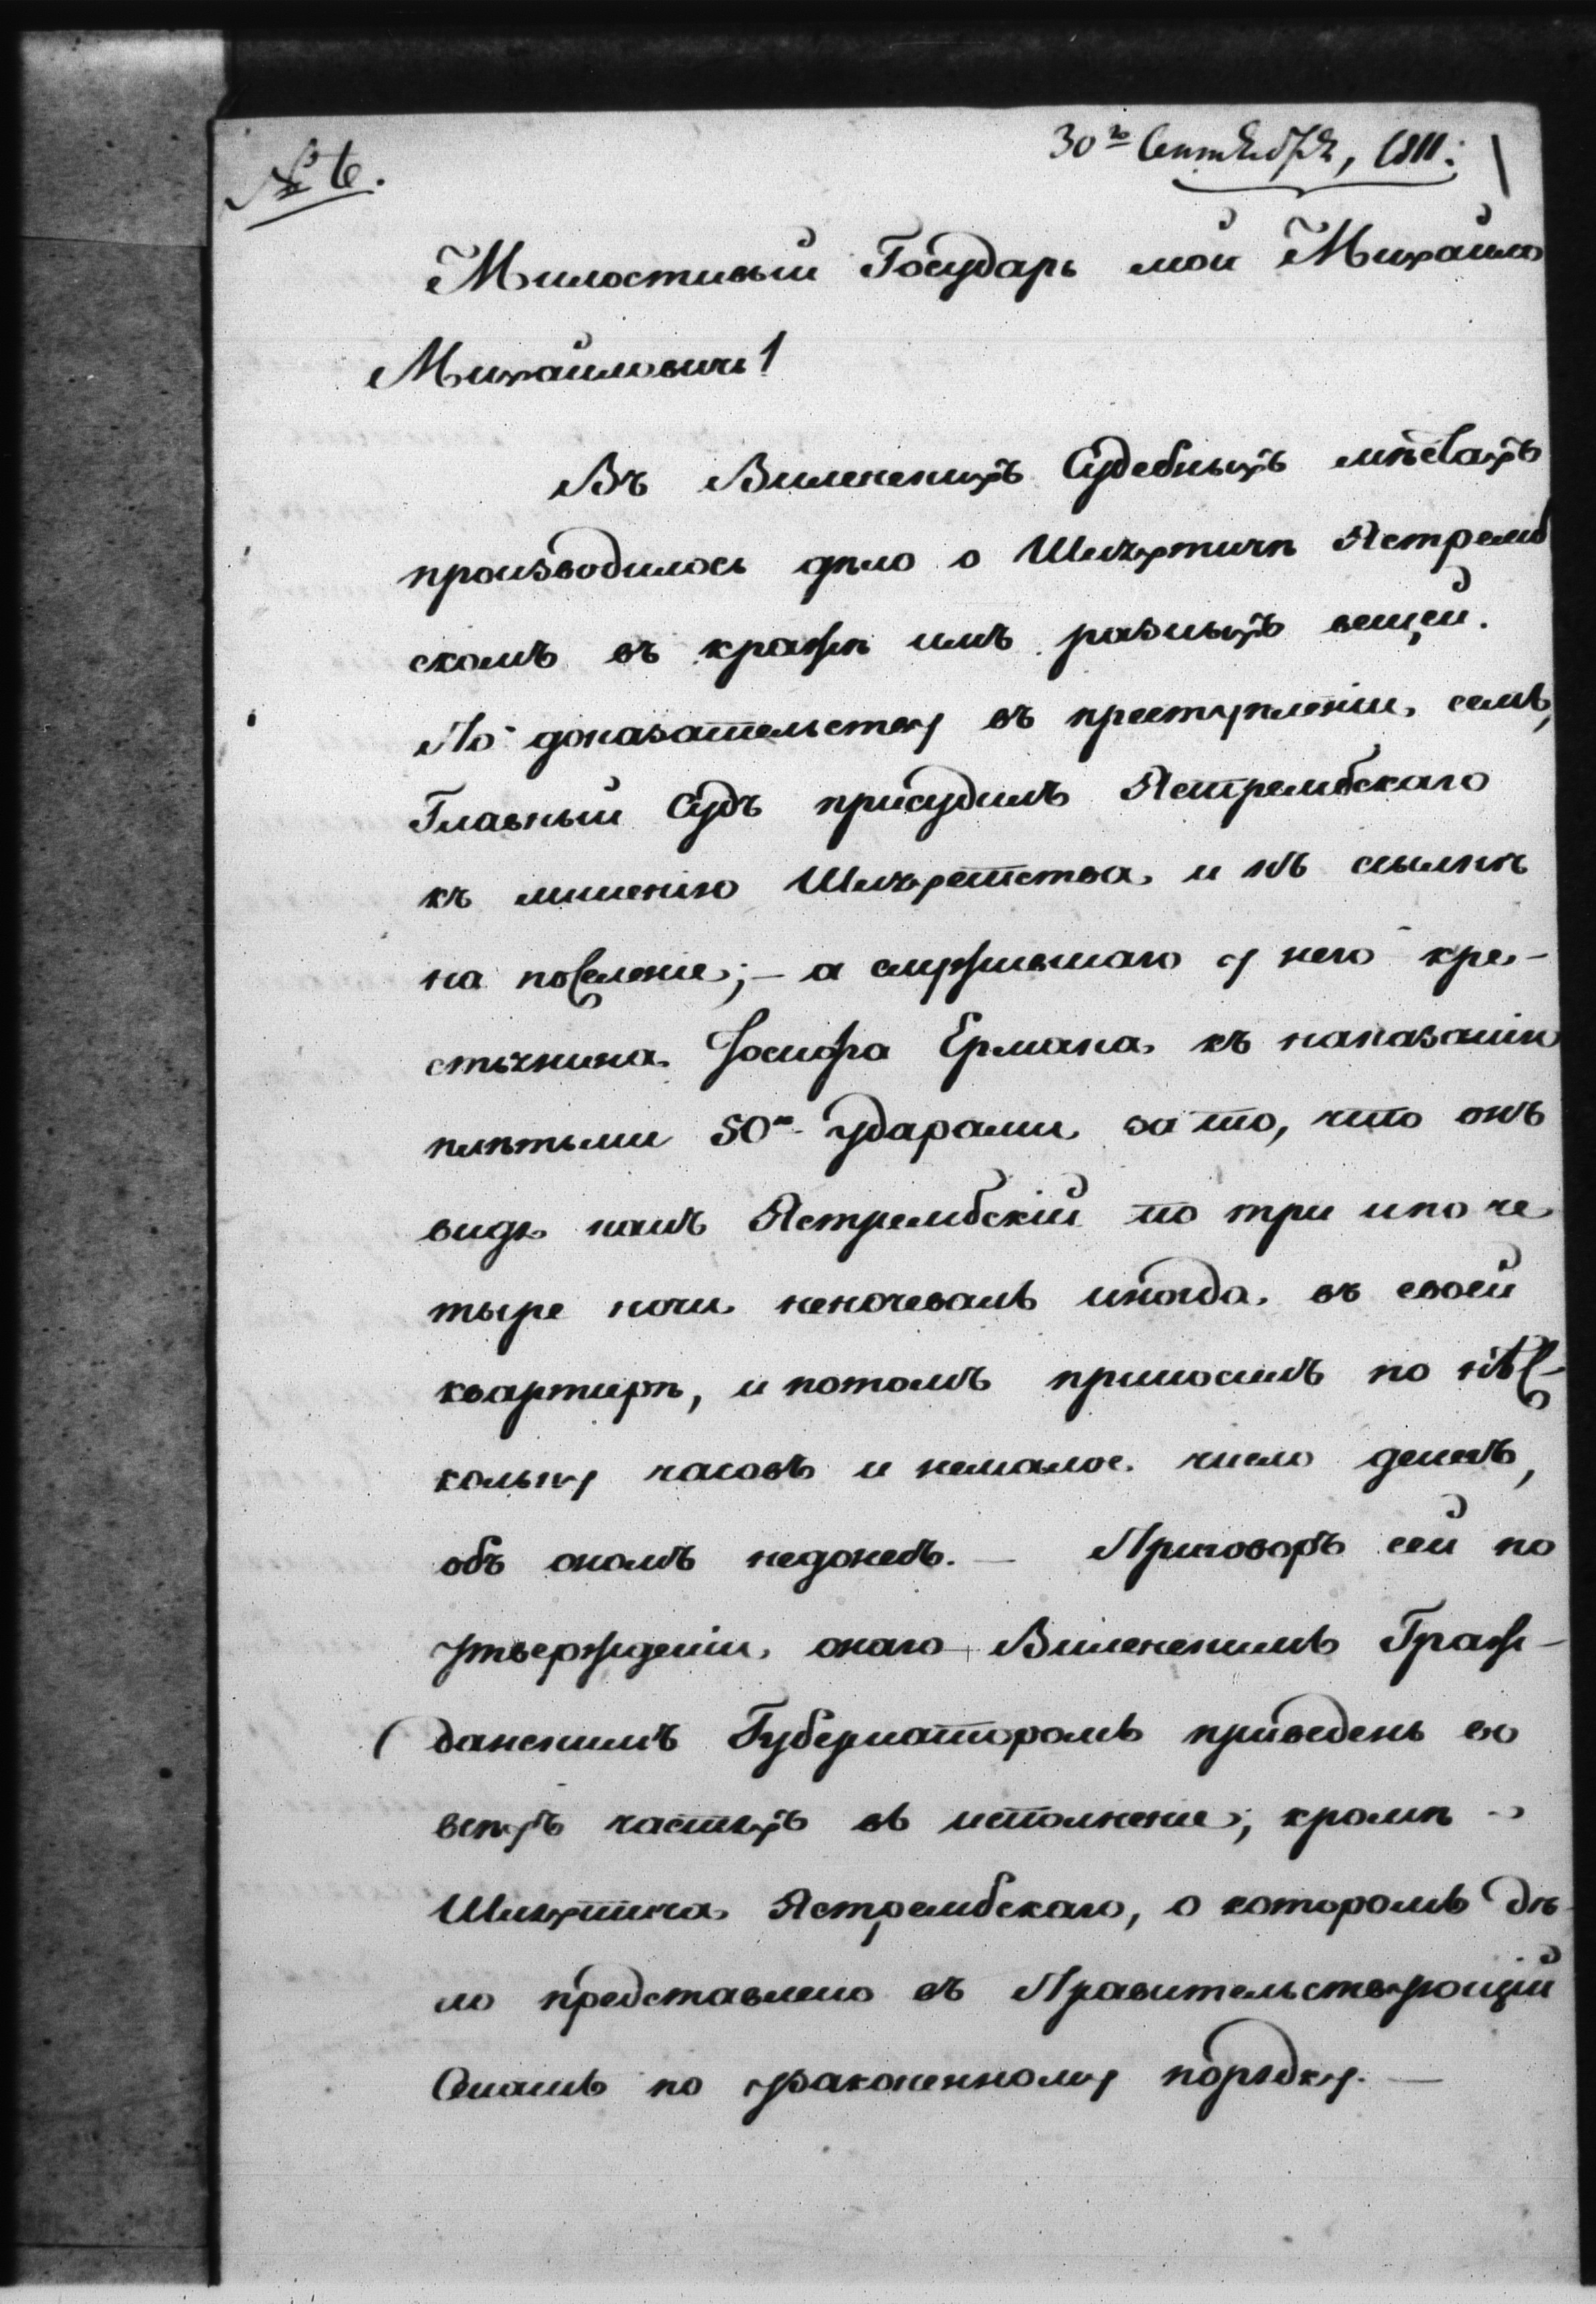 № 6.
30го Сентября, 1811:
Милостивый Государь мой Михайло
Михайловичь!
Въ Виленскихъ Судебныхъ мѣстахъ
производилось дѣло о Шляхтичѣ Ястремб
скомъ въ кражѣ имъ разныхъ вещей.
По доказательству въ преступленіи семъ,
Главный Судъ присудилъ Ястрембскаго
къ лишенію Шляхетства и къ ссылкѣ
на поселеніе; – а служившаго у него кре-
стьянина Іосифа Ермана къ наказанію
плѣтьми 50ю ударами за то, что онъ
видя какъ Ястрембскій по три и по че
тыре ночи неночевалъ иногда въ своей
квартирѣ, и потомъ приносилъ по нѣс-
кольку часовъ и немалое число денегъ,
объ ономъ недонесъ. – Приговоръ сей по
утвержденіи онаго Виленскимъ Граж-
данскимъ Губернаторомъ приведенъ во
всѣхъ частяхъ въ исполненіе; кромѣ
Шляхтича Ястрембскаго, о которомъ дѣ-
ло представлено въ Правительствующій
Сенатъ по узаконенному порядку. –